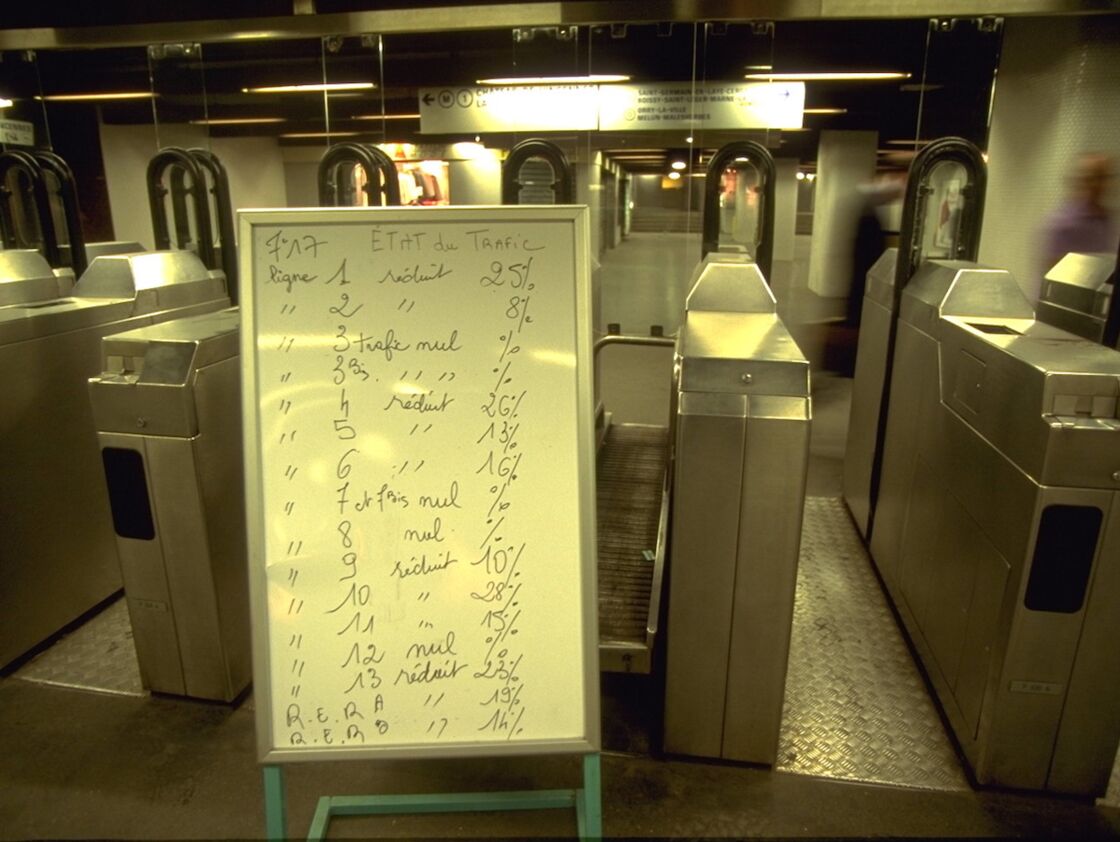 ← M 1
SAINT-GERMAIN-EN-LAYE-CER
BOISSY-SAINT-LEGER-MARNE-LA
LA
ORRY-LA-VILLE
MELUN-MALESHERBES
→
7h17 ÉTAT du TRAFIC
ligne 1 réduit 25%
" 2 " 8%
" 3 trafic nul %
" 3Bis. " " %
" 4 réduit 26%
" 5 " 13%
" 6 " 16%
" 7 et 7Bis nul %
" 8 nul %
" 9 réduit 10%
" 10 " 28%
" 11 " 15%
" 12 nul %
" 13 réduit 23%
R.E.R A " 19%
R.E.R B " 14%